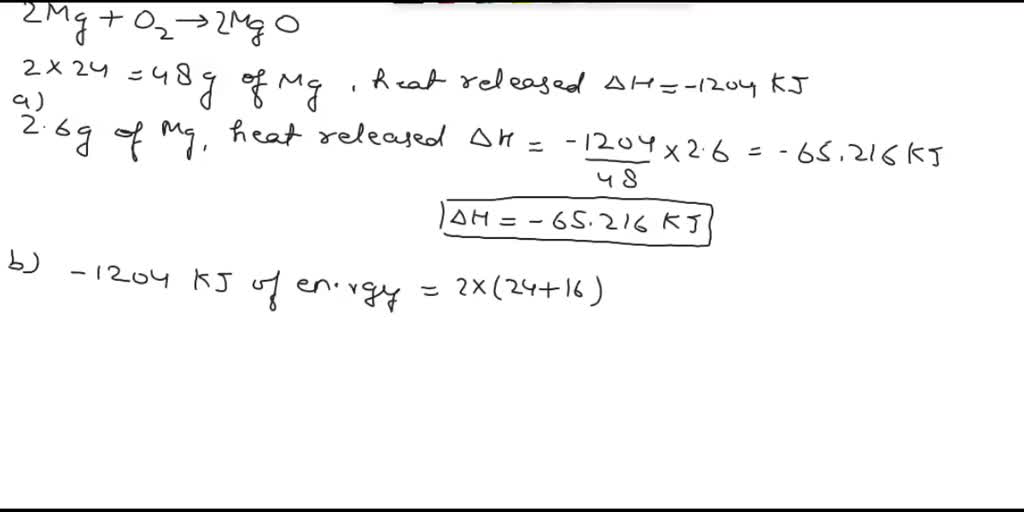 2Mg + O2 → 2MgO
2 × 24 = 48g of Mg, heat released ΔH = -1204 KJ
a)
2.6g of Mg, heat released ΔH = -1204/48 × 2.6 = -65.216 KJ
ΔH = -65.216 KJ
b) -1204 KJ of energy = 2×(24+16)